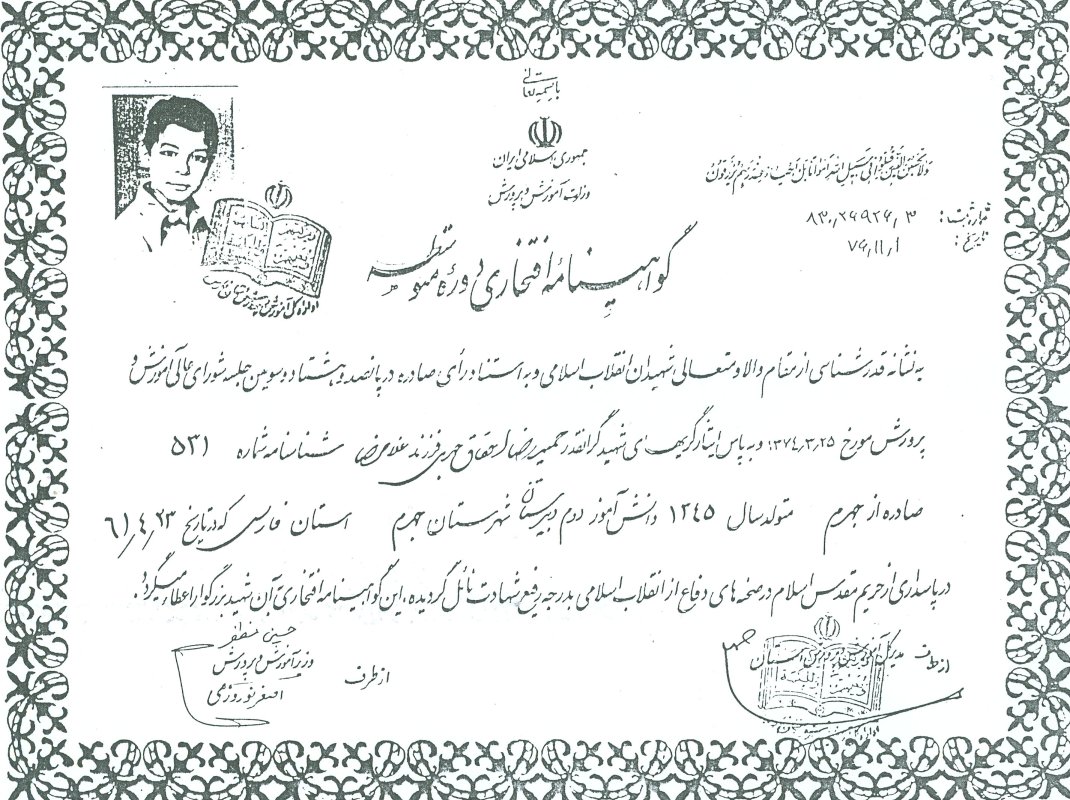 باسمه تعالی
جمهوری اسلامی ایران
وزارت آموزش و پرورش
ولا تحسبن الذین قتلوا فی سبیل الله امواتا بل احیاء عند ربهم یرزقون
شماره ثبت: ۸۳۰٫۲۶۹۲۶٫۳
تاریخ: ۷۶٫۱۱٫۱
گواهینامهٔ افتخاری دورهٔ متوسطه
به نشانه قدرشناسی از مقام والا و متعالی شهیدان انقلاب اسلامی و به استناد رأی صادره در پانصد و هشتاد و سومین جلسه شورای عالی آموزش و
پرورش مورخ ۱۳۷۴٫۳٫۲۵ و به پاس ایثارگریهای شهید گرانقدر حمیدرضا فرزند غلامرضا شناسنامه شماره ۵۳۱
صادره از جهرم متولد سال ۱۳۴۵ دانش آموز دوم دبیرستان شهرستان جهرم استان فارس که در تاریخ ۶۱٫۴٫۲۳
در پاسداری از حریم مقدس اسلام در صحنه های دفاع از انقلاب اسلامی بدرجه رفیع شهادت نائل گردیده، این گواهینامه افتخاری به آن شهید بزرگوار اعطاء میگردد.
از طرف مدیر کل آموزش و پرورش استان
از طرف
حسین مظفر
وزیر آموزش و پرورش
اصغر نوروزی